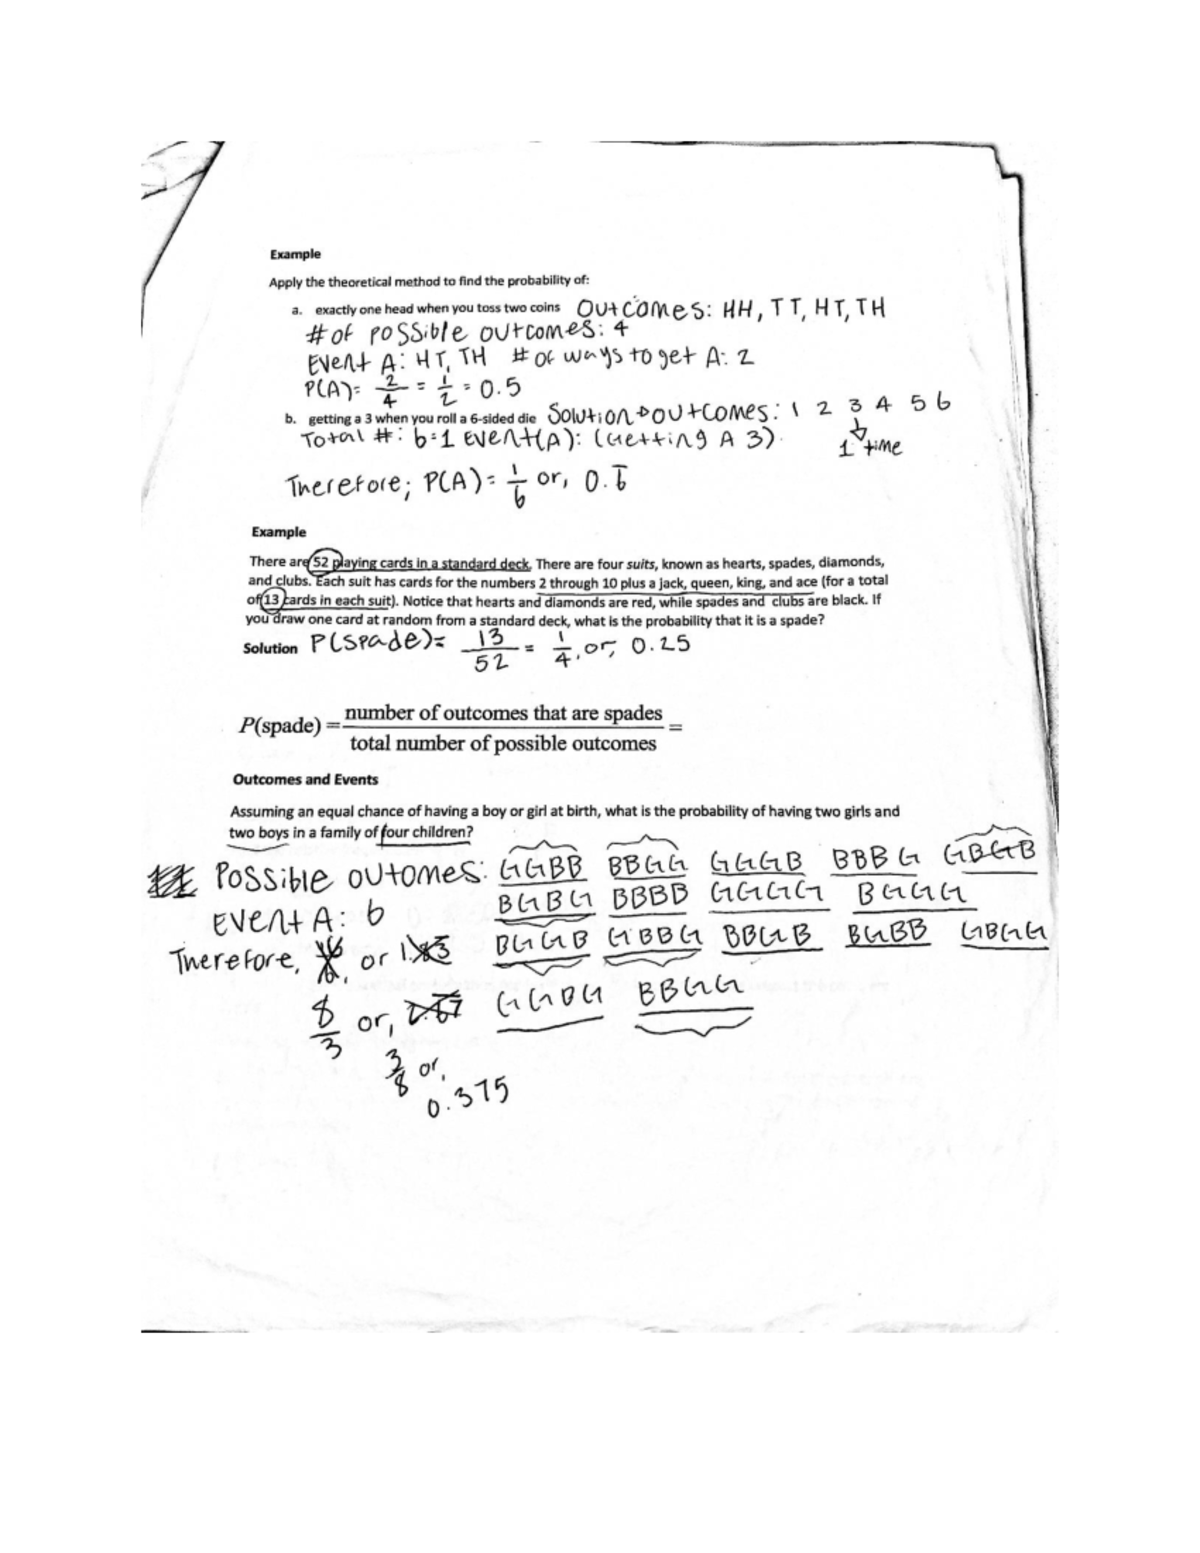 Example
Apply the theoretical method to find the probability of:
a. exactly one head when you toss two coins Outcomes: HH, TT, HT, TH
# of possible outcomes: 4
Event A: HT, TH # of ways to get A: 2
P(A)= 2/4 = 1/2 = 0.5
b. getting a 3 when you roll a 6-sided die Solution→outcomes: 1 2 3 4 5 6
Total #: 6=1 Event(A): (Getting A 3). 1 time
Therefore; P(A)= 1/6 or, 0.1̅6̅
Example
There are 52 playing cards in a standard deck. There are four suits, known as hearts, spades, diamonds,
and clubs. Each suit has cards for the numbers 2 through 10 plus a jack, queen, king, and ace (for a total
of 13 cards in each suit). Notice that hearts and diamonds are red, while spades and clubs are black. If
you draw one card at random from a standard deck, what is the probability that it is a spade?
Solution P(spade)= 13/52 = 1/4, or, 0.25
P(spade) = number of outcomes that are spades / total number of possible outcomes =
Outcomes and Events
Assuming an equal chance of having a boy or girl at birth, what is the probability of having two girls and
two boys in a family of four children?
Possible outomes: GGBB BBGG GGGB BBBG GBGB
Event A: 6 BGBG BBBB GGGG BGGG
Therefore, or BGGB GBBG BBGB BGBB GBGG
8/3 or, 2.67 GGBG BBGG
3/8 or,
0.375